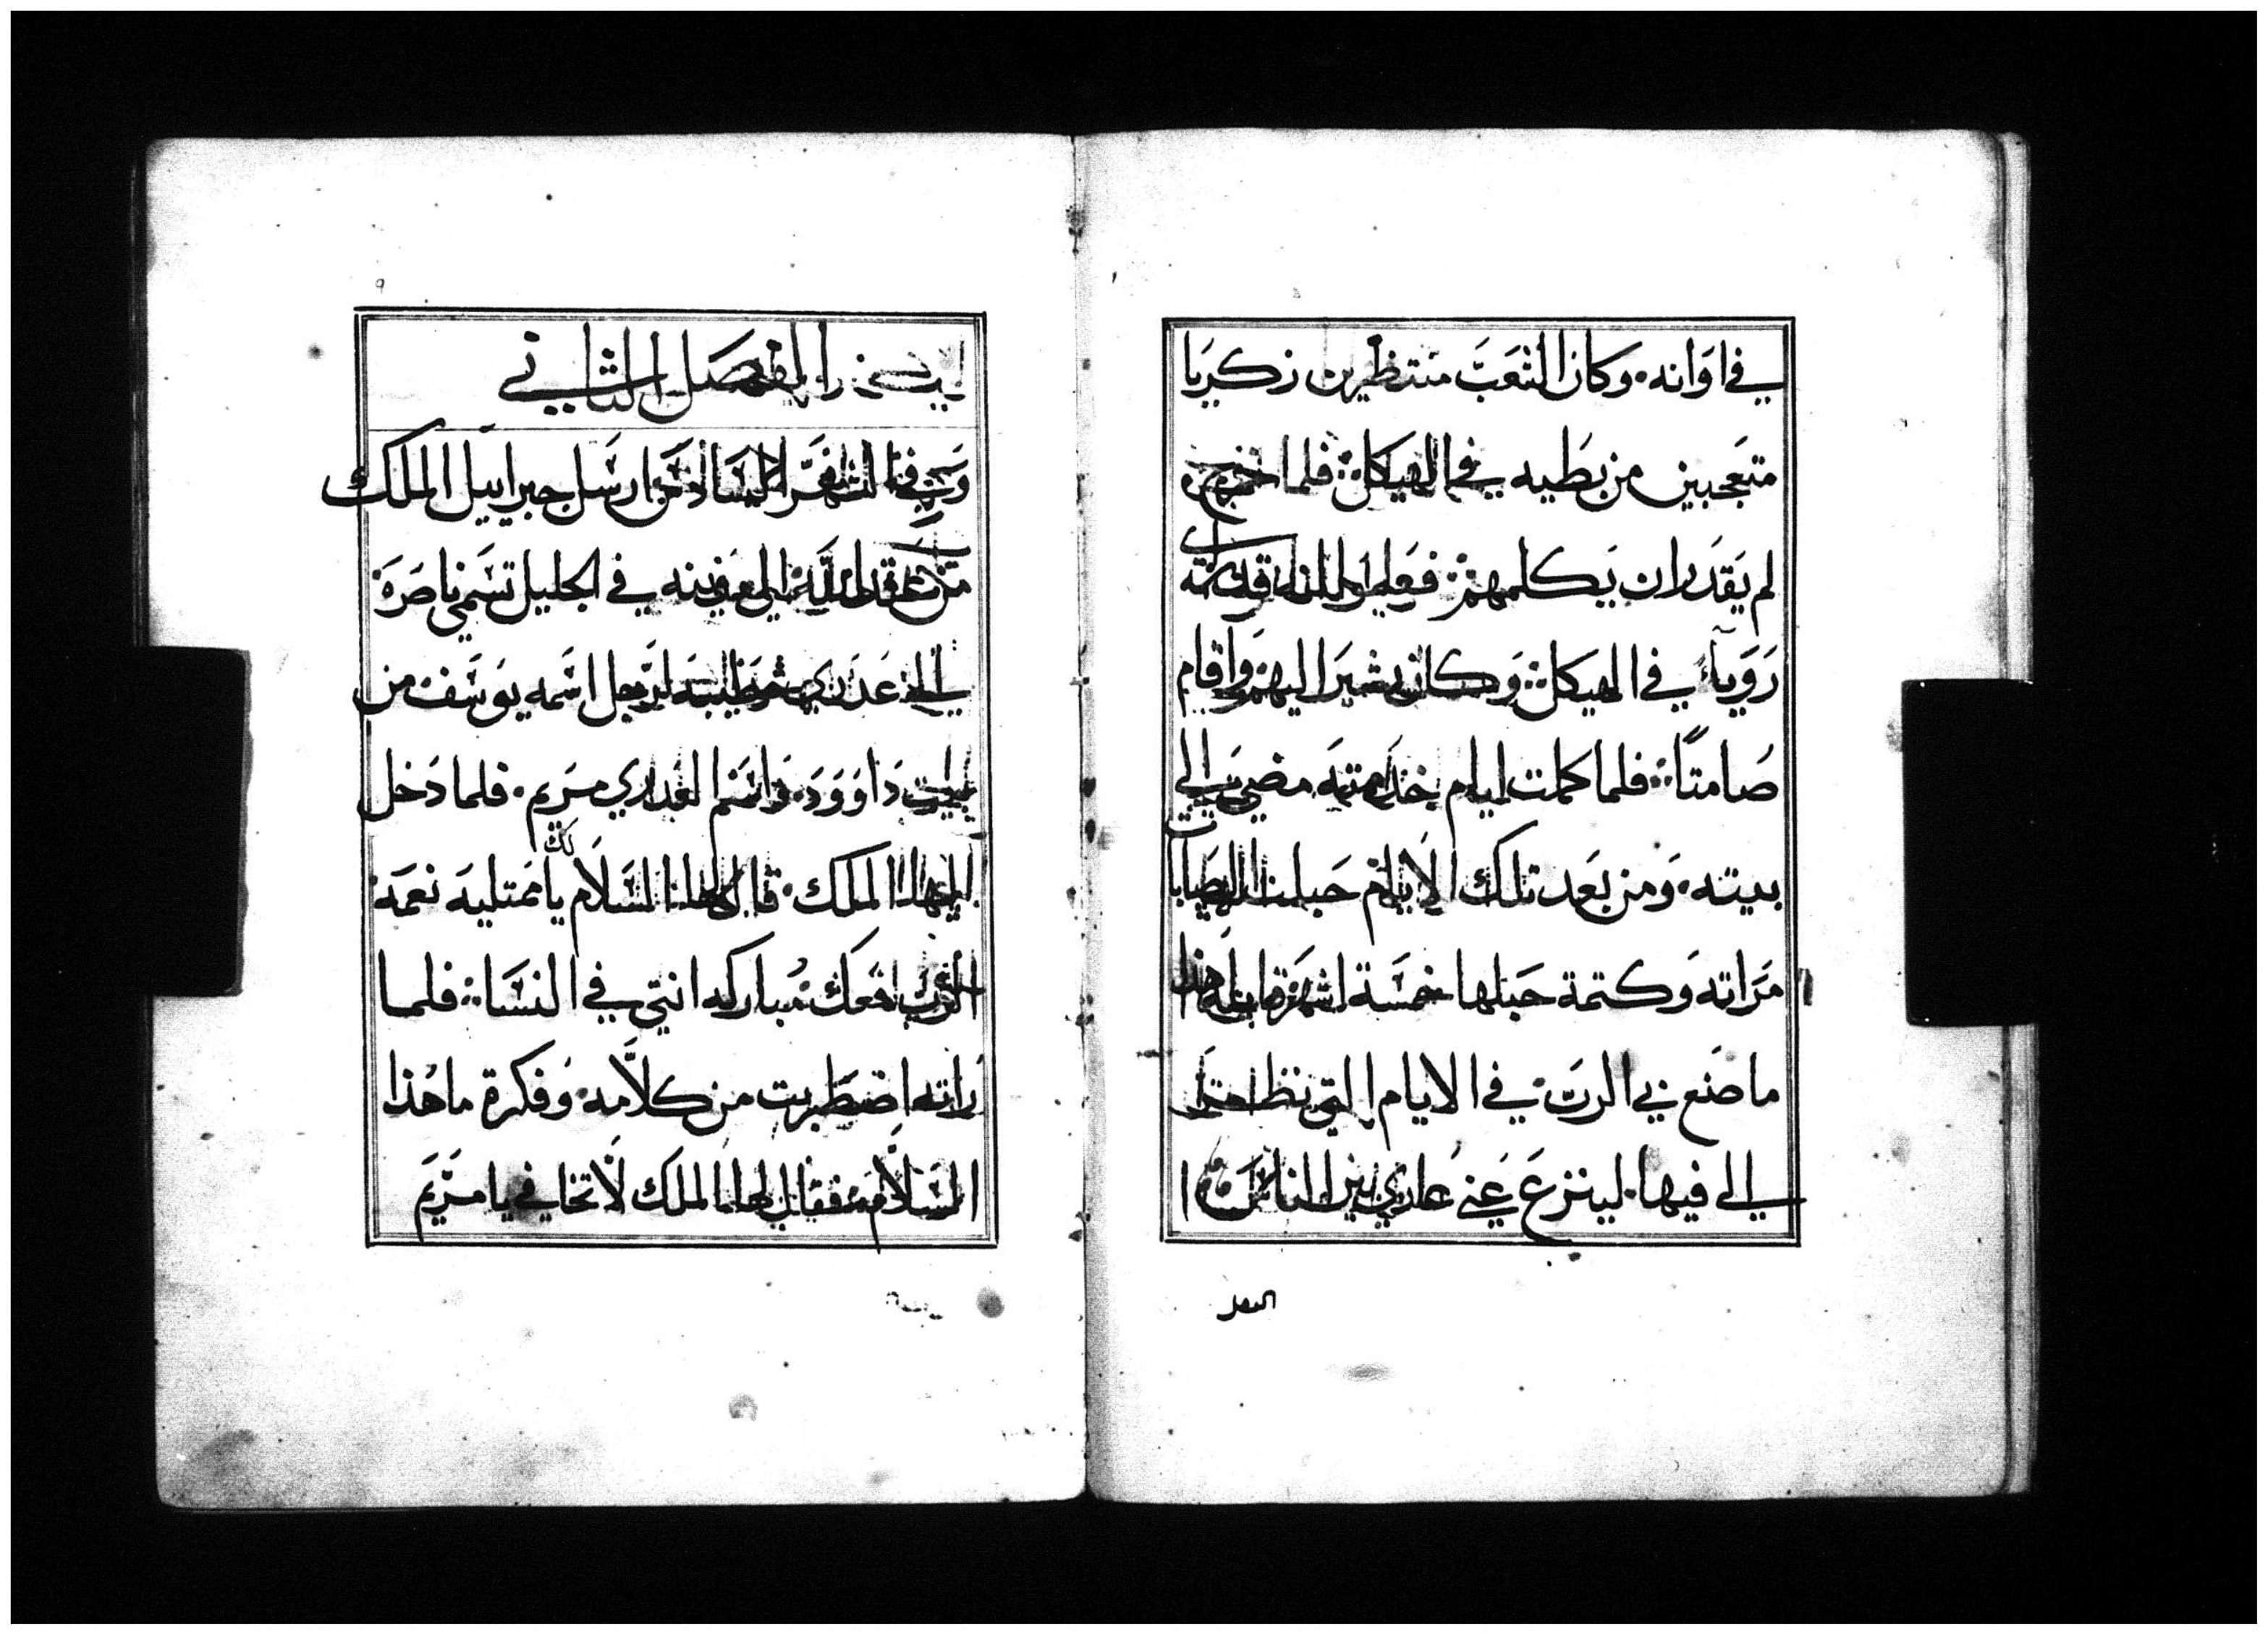 في اوَانه. وكان الشعَبَ منتظرين زكريَا
متعَجبين من بطَيه في الهيكل: فلما خرج
لم يَقدَر ان يَكلمهم: فعَلموا انه قد راى
رَوَيآء في الهيكل: وَكان يشيرَ اليهم وَاقام
صَامتاً: فلما كملت ايام خدَمته مضي الي
بيته. وَمن بعَد تلك الاَيام حبلت اليصَابات
مَراته وَكتمة حَبلها خمسَة اشهرَ قايله هذا
ما صَنع بي الربَ. في الايام التي نظر
الي فيها. لينزعَ عَني عاري بين الناس
الفصل
الفصَل الثاني
وَفي الشهرَ السَادسَ ارسَل جبراييل الملك
من عند الله الي مدينه في الجليل تسَمي ناصَرَة
الي عَذرَي خطيبَه لرَجل اسَمه يوَسَف من
بيت دَاوَوَد. وَاسَم العَذري مَريم. فلما دَخل
اليها الملك. قال لها السَلاَم لك يا مَمتليه نعَمة
الرَب معَك. مُباركه انتي في النسَا: فلما
رَاته اضطَربت من كلاَمه. وَفكرة ما هَذا
السَلاَم. فقال لها الملَك لاَ تخافي يا مَريَم